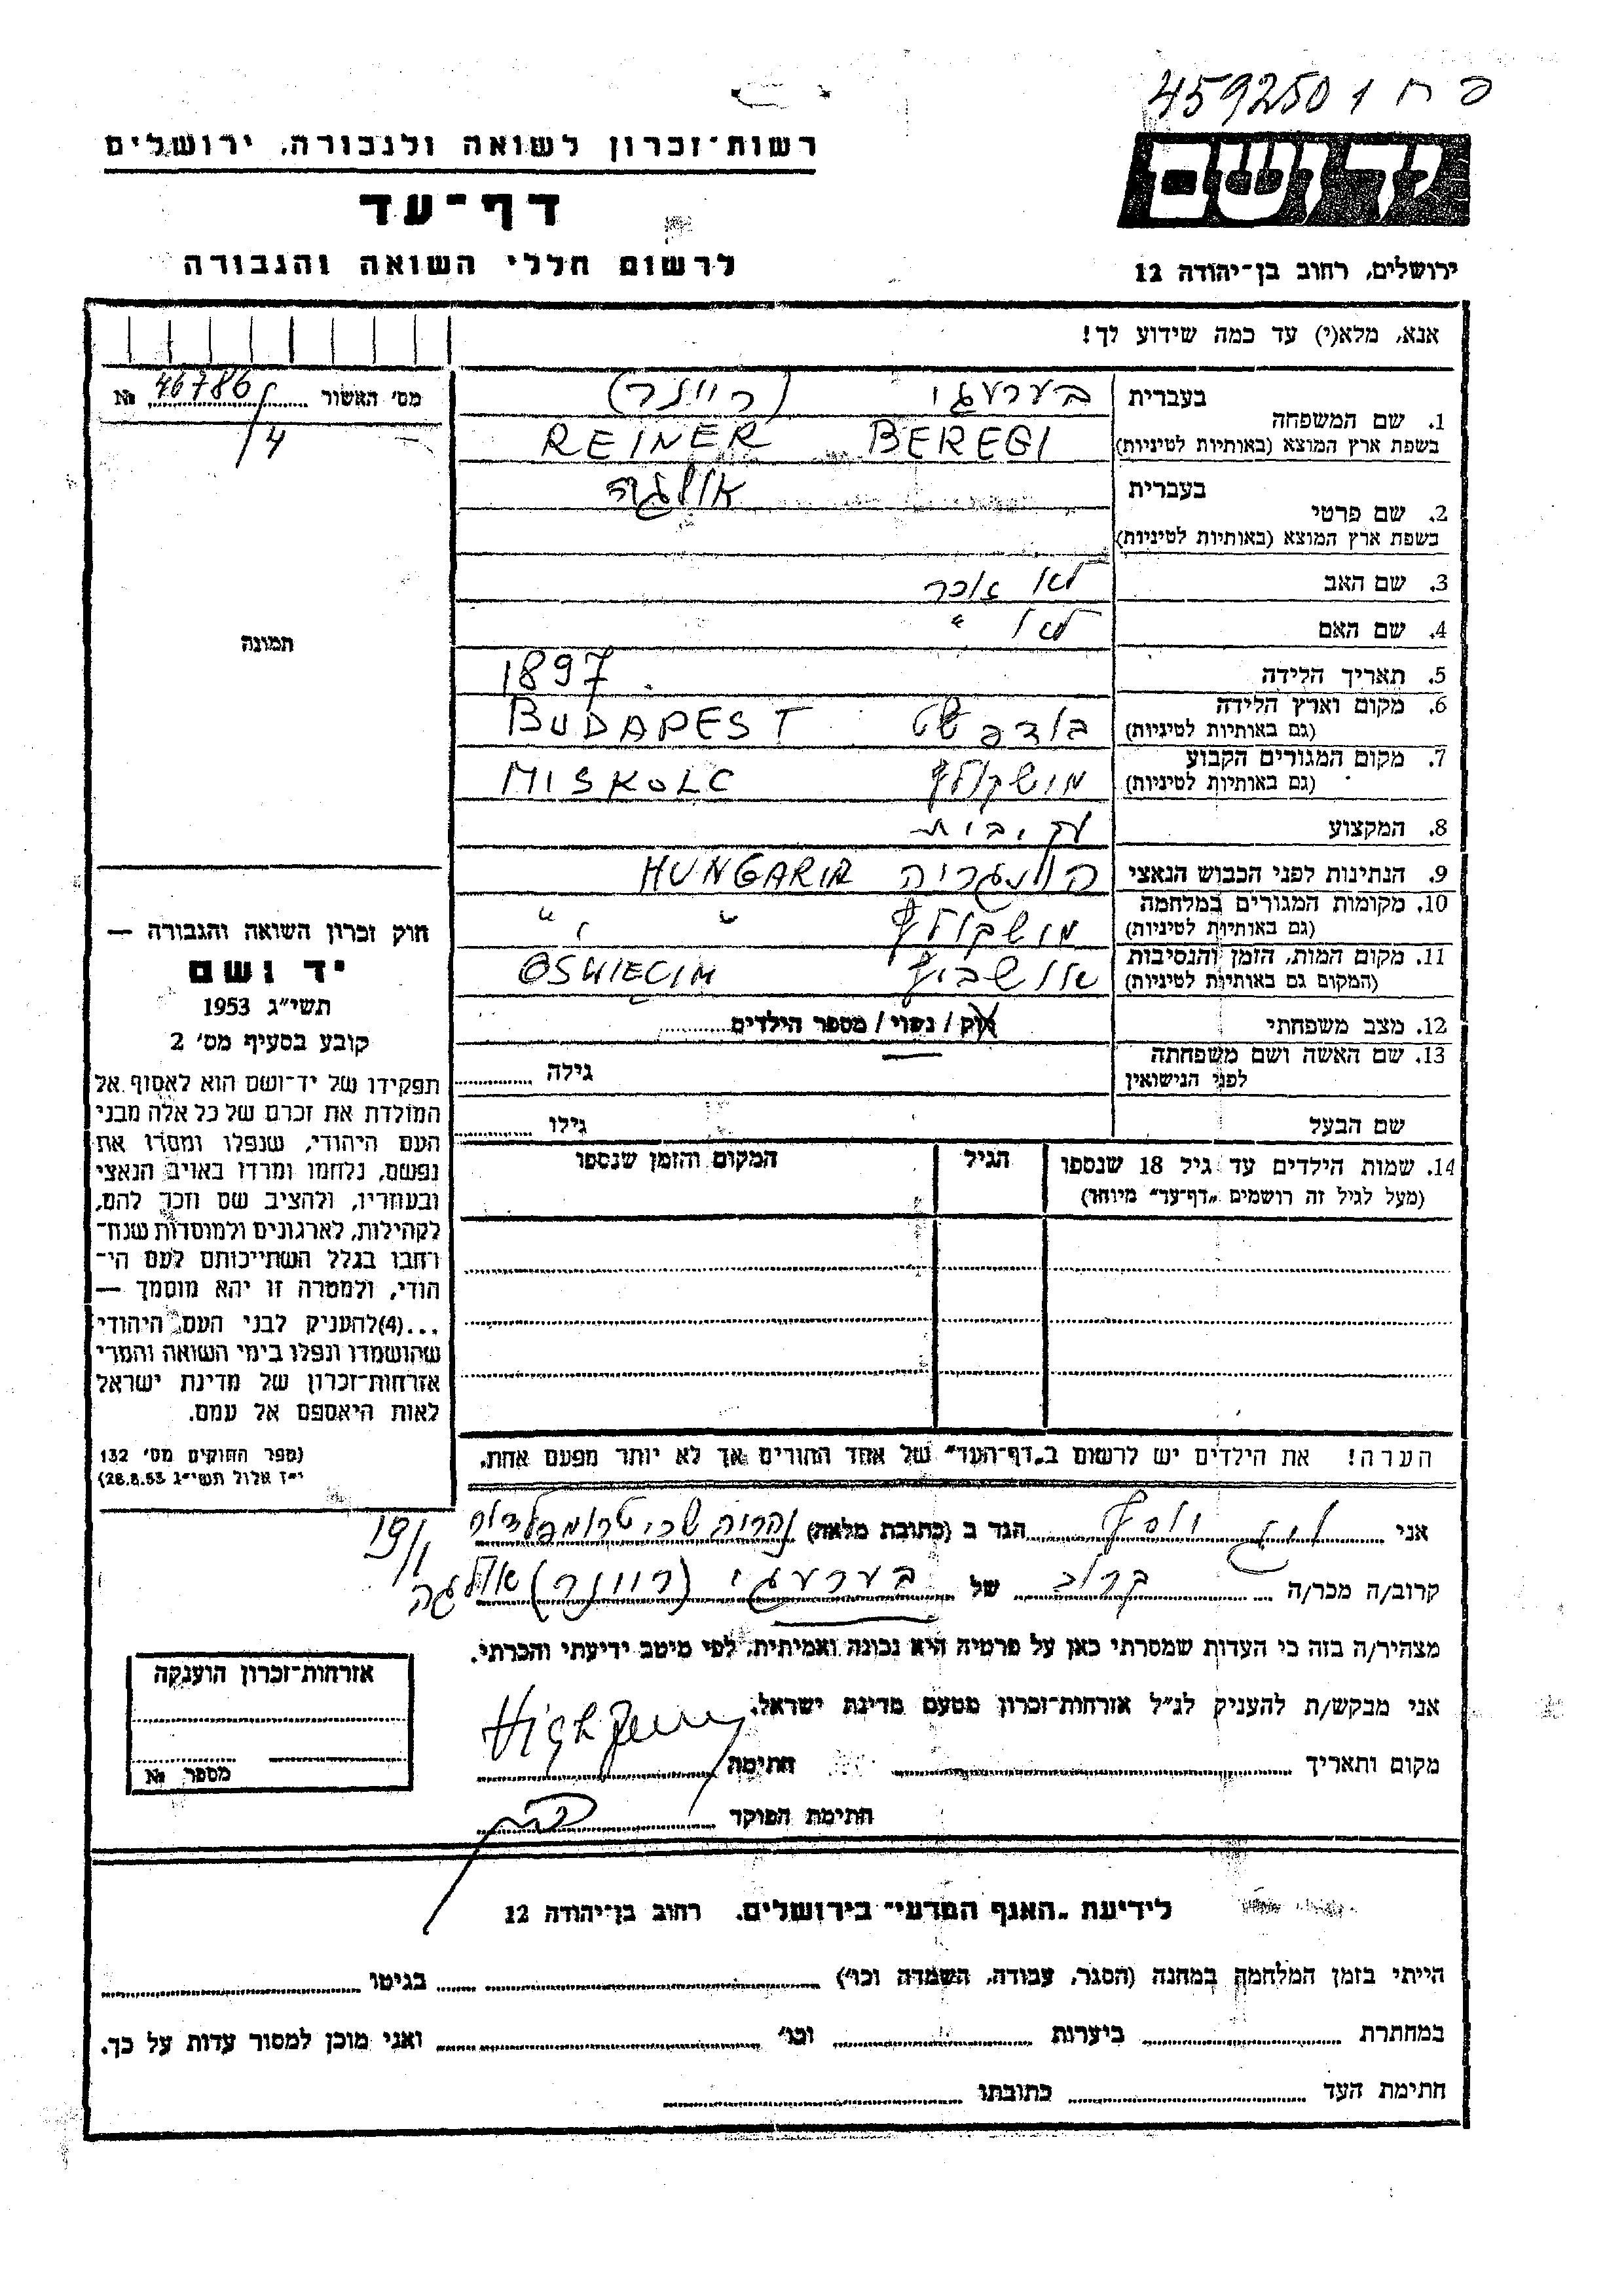 459250 1 פ ח
יד ושם
רשות־זכרון לשואה ולגבורה, ירושלים
דף־עד
לרשום חללי השואה והגבורה
ירושלים, רחוב בן־יהודה 12
אנא, מלא(י) עד כמה שידוע לך!
מס׳ האשור 46786 №
/4
1. שם המשפחה
בעברית בערעגי (ריינר)
בשפת ארץ המוצא (באותיות לטיניות) REINER BEREGI
2. שם פרטי
בעברית אולגה
בשפת ארץ המוצא (באותיות לטיניות)
3. שם האב לא זוכר
4. שם האם לא "
5. תאריך הלידה 1897
6. מקום וארץ הלידה
(גם באותיות לטיניות) בודפשט BUDAPEST
7. מקום המגורים הקבוע
(גם באותיות לטיניות) מישקולץ MISKOLC
8. המקצוע
9. הנתינות לפני הכבוש הנאצי הונגריה HUNGARIA
10. מקומות המגורים במלחמה
(גם באותיות לטיניות) מישקולץ " " "
11. מקום המות, הזמן והנסיבות
(המקום גם באותיות לטיניות) אושביץ OSWIECIM
12. מצב משפחתי רוק / נשוי / מספר הילדים
13. שם האשה ושם משפחתה
לפני הנישואין גילה
שם הבעל גילו
14. שמות הילדים עד גיל 18 שנספו הגיל המקום והזמן שנספו
(מעל לגיל זה רושמים „דף־עד" מיוחד)
הערה! את הילדים יש לרשום ב„דף־העד" של אחד ההורים אך לא יותר מפעם אחת.
תמונה
חוק זכרון השואה והגבורה —
יד ושם
תשי״ג 1953
קובע בסעיף מס׳ 2
תפקידו של יד־ושם הוא לאסוף אל
המולדת את זכרם של כל אלה מבני
העם היהודי, שנפלו ומסרו את
נפשם, נלחמו ומרדו באויב הנאצי
ובעוזריו, ולהציב שם וזכר להם,
לקהילות, לארגונים ולמוסדות שנח־
רבו בגלל השתייכותם לעם הי־
הודי, ולמטרה זו יהא מוסמך —
...(4) להעניק לבני העם היהודי
שהושמדו ונפלו בימי השואה והמרי
אזרחות־זכרון של מדינת ישראל
לאות היאספם אל עמם.
(ספר החוקים מס׳ 132
י״ז אלול תשי״ג 28.8.53)
אני יוסף הגר ב (כתובת מלאה) נהריה שכ׳ טרומפלדור
19/1
קרוב/ה מכר/ה קרוב של בערעגי (ריינר) אולגה
מצהיר/ה בזה כי העדות שמסרתי כאן על פרטיה היא נכונה ואמיתית, לפי מיטב ידיעתי והכרתי.
אני מבקש/ת להעניק לנ״ל אזרחות־זכרון מטעם מדינת ישראל.
מקום ותאריך חתימה
חתימת הפוקד
אזרחות־זכרון הוענקה
מספר №
לידיעת „האגף המדעי" בירושלים, רחוב בן־יהודה 12
הייתי בזמן המלחמה במחנה (הסגר, עבודה, השמדה וכו׳) בגיטו
במחתרת ביערות וכו׳ ואני מוכן למסור עדות על כך.
חתימת העד כתובתו